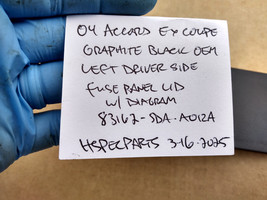 04 ACCORD EX COUPE
GRAPHITE BLACK OEM
LEFT DRIVER SIDE
FUSE PANEL LID
W/ DIAGRAM
83162-SDA-A012A
HSPECPARTS 3-16-2025